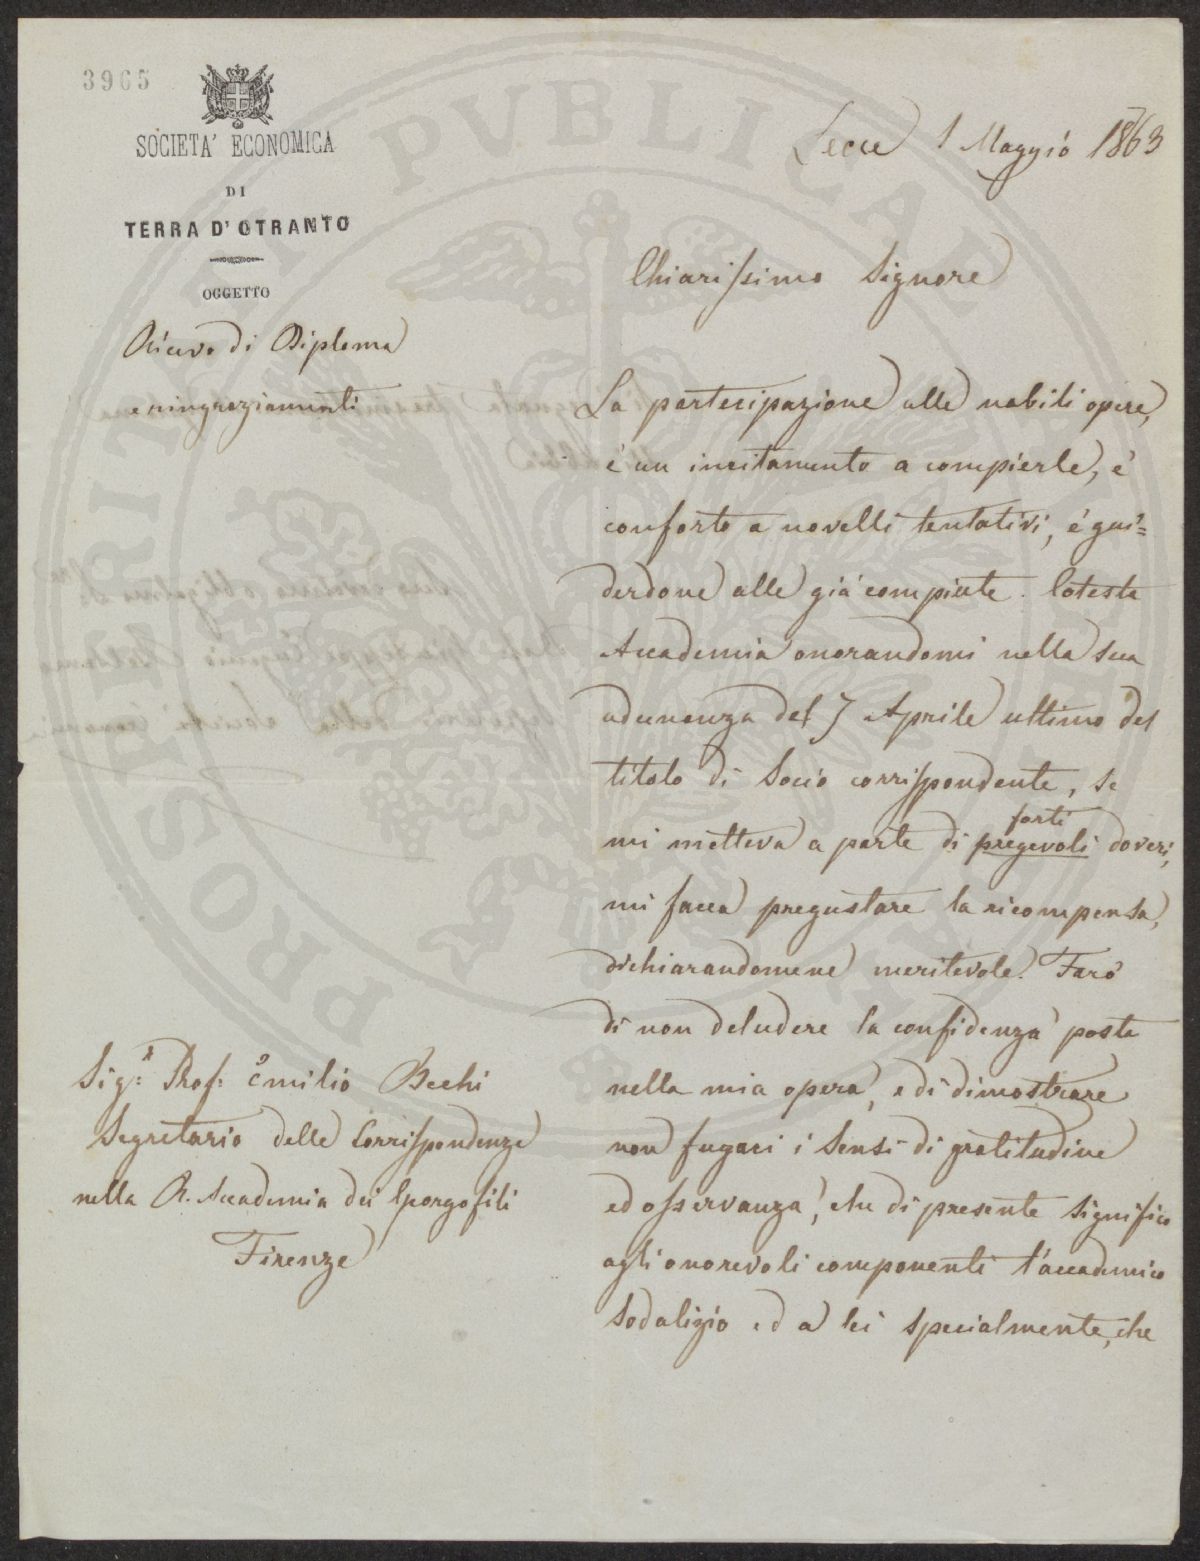 3965
SOCIETA' ECONOMICA
DI
TERRA D'OTRANTO
OGGETTO
Ricevo di Diploma
e ringraziamenti
Lecce 1 Maggio 1863
Chiarissimo Signore
La partecipazione alle nobili opere,
è un incitamento a compierle, è
conforto a novelli tentativi, è gui=
derdone alle già compiute. Cotesta
Accademia onorandomi nella sua
adunanza del 7 Aprile ultimo del
titolo di Socio corrispondente, se
mi metteva a parte di pregevoli doveri,
forti
mi facea pregustare la ricompensa,
dichiarandomene meritevole. Farò
di non deludere la confidenza posta
nella mia opera, e di dimostrare
non fugaci i sensi di gratitudine
ed osservanza, che di presente significo
agli onorevoli componenti l'accademico
Sodalizio ed a lei specialmente, che
Sig.r Prof. Emilio Bechi
Segretario delle Corrispondenze
nella R. Accademia dei Georgofili
Firenze
PROSPERITATI PVBLICAE AVGENDAE